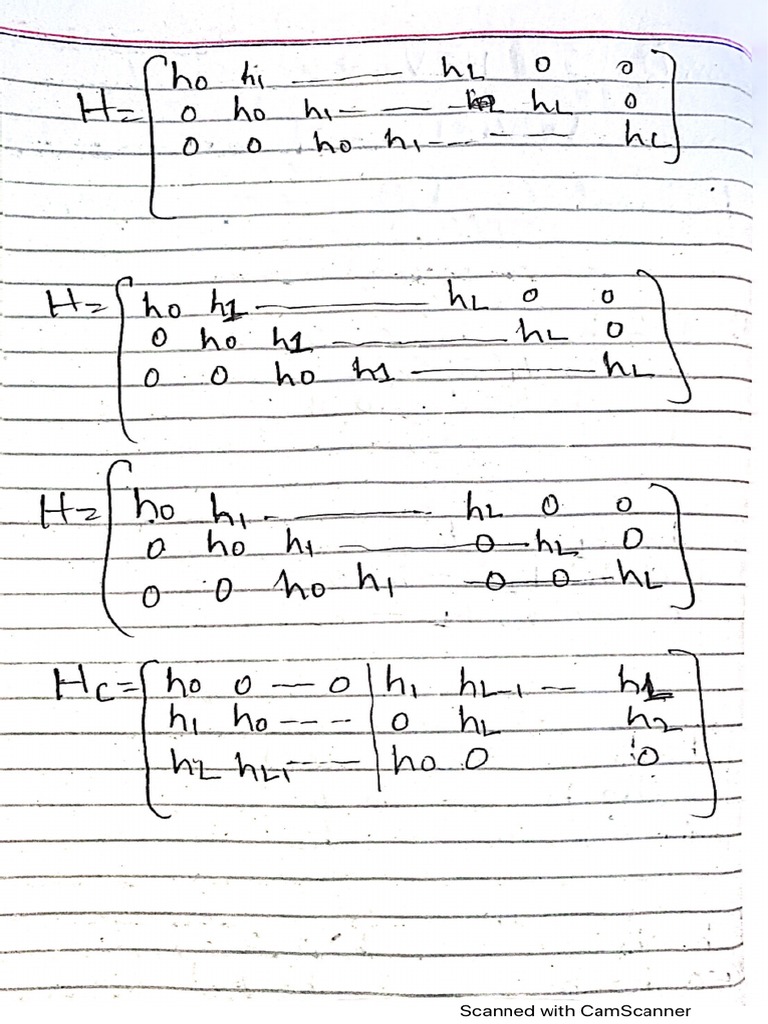 H= h0 h1 —— hL 0 0
0 h0 h1 — — hL 0
0 0 h0 h1 -- — hL
H= h0 h1 —— hL 0 0
0 h0 h1 —— hL 0
0 0 h0 h1 —— hL
H= h0 h1 —— hL 0 0
0 h0 h1 —— 0 hL 0
0 0 h0 h1 0 0 hL
Hc= h0 0 — 0 | h1 hL-1 — h1
h1 h0 --- | 0 hL h2
hL hL-1 --- | h0 0 0
Scanned with CamScanner